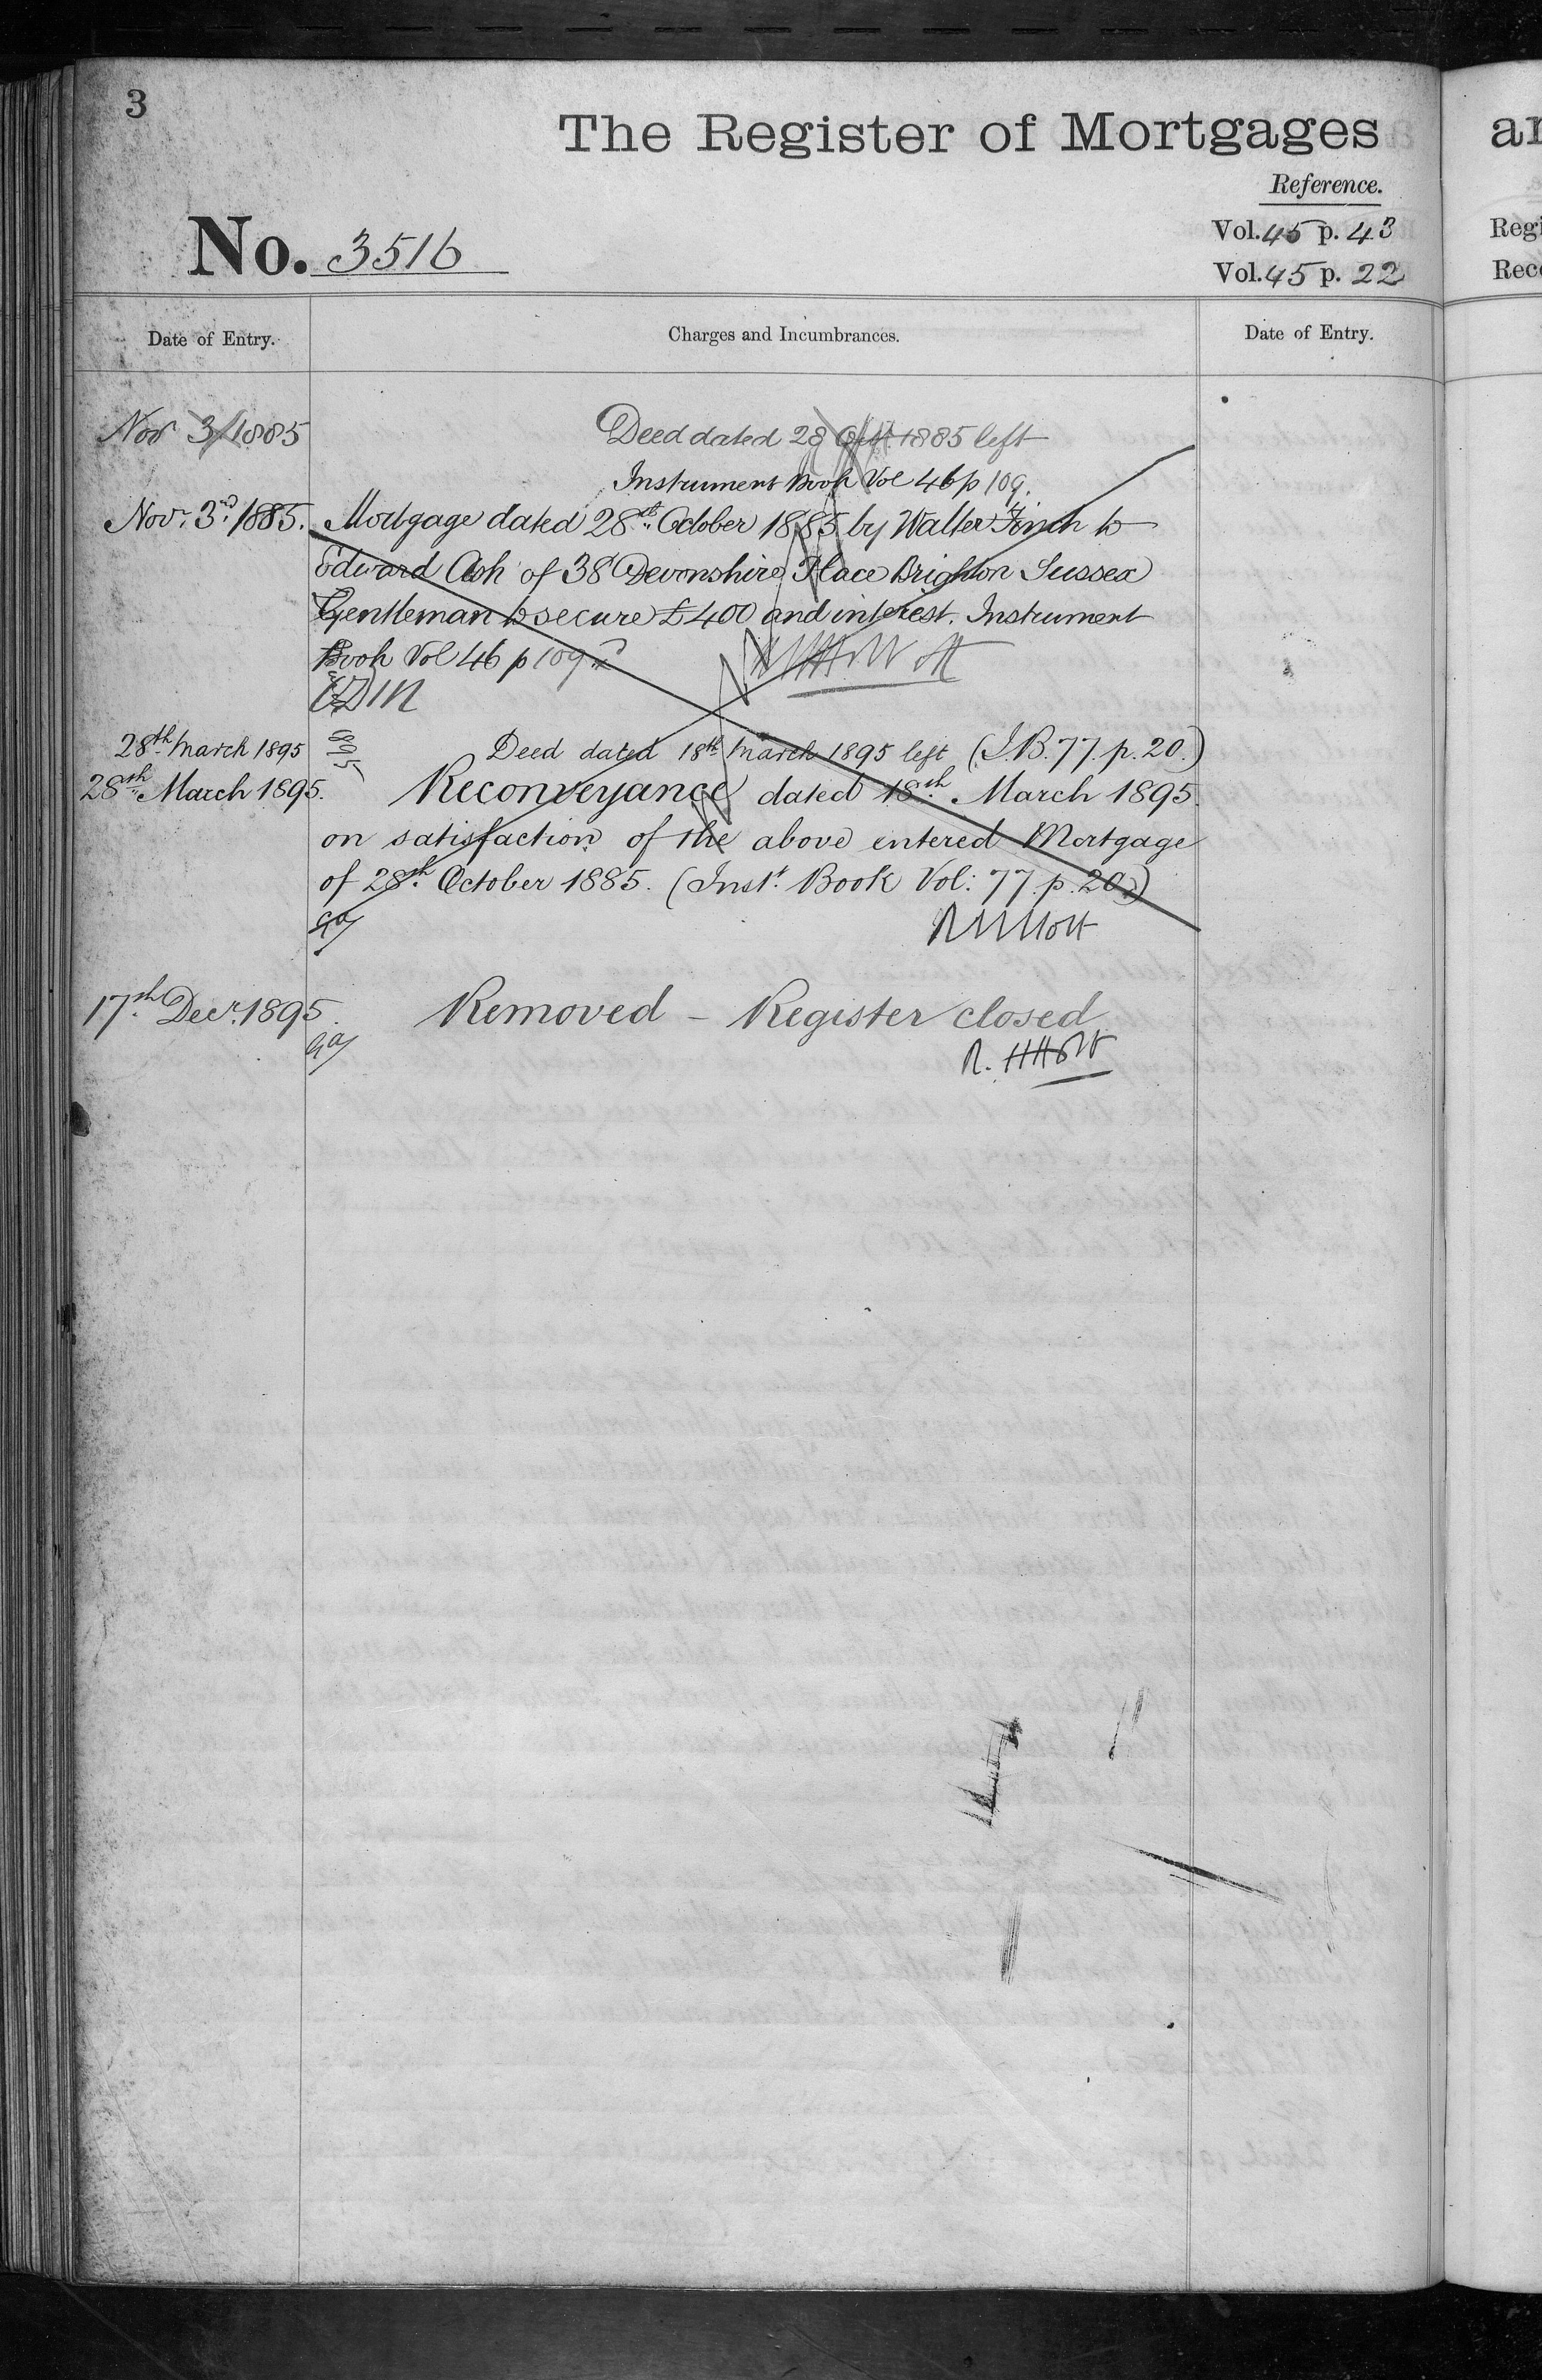 3
The Register of Mortgages
Reference.
No. 3516
Vol. 45 p. 43
Vol. 45 p. 22
Regi
Rec
Date of Entry.
Charges and Incumbrances.
Date of Entry.
Nov 3/1885
Deed dated 28 Oct 1885 left
Instrument Book Vol 46 p 109.
Nov. 3rd 1885. Mortgage dated 28th October 1885 by Walter Finch to
Edward Ash of 38 Devonshire Place Brighton Sussex
Gentleman to secure £400 and interest. Instrument
Book Vol 46 p 109
28th March 1895 Deed dated 18th March 1895 left (I.B. 77. p. 20.)
28th March 1895. Reconveyance dated 18th March 1895.
on satisfaction of the above entered Mortgage
of 28th October 1885. (Inst. Book Vol: 77. p. 20.)
17th Decr. 1895. Removed – Register closed